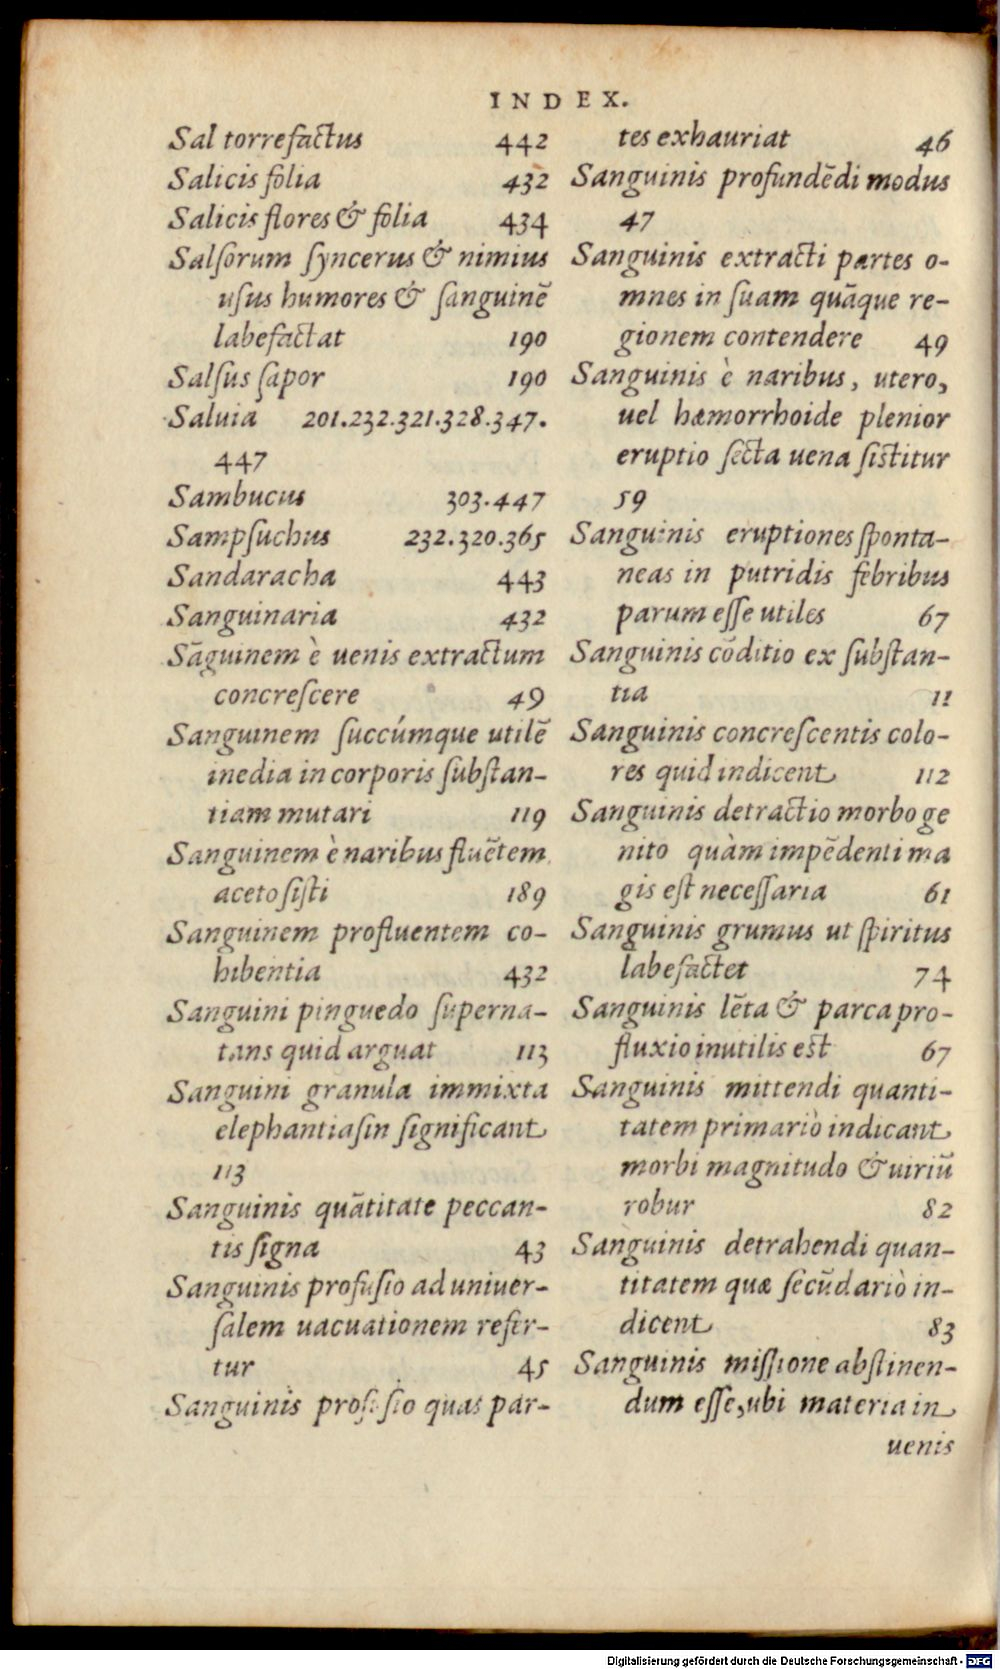 INDEX.
Sal torrefactus 442
Salicis folia 432
Salicis flores & folia 434
Salsorum syncerus & nimius
usus humores & sanguinē
labefactat 190
Salsus sapor 190
Saluia 201.232.321.328.347.
447
Sambucus 303.447
Sampsuchus 232.320.365
Sandaracha 443
Sanguinaria 432
Sāguinem è uenis extractum
concrescere 49
Sanguinem succúmque utilē
inedia in corporis substan-
tiam mutari 119
Sanguinem è naribus fluētem
aceto sisti 189
Sanguinem profluentem co-
hibentia 432
Sanguini pinguedo superna-
tans quid arguat 113
Sanguini granula immixta
elephantiasin significant
113
Sanguinis quātitate peccan-
tis signa 43
Sanguinis profusio ad uniuer-
salem uacuationem refer-
tur 45
Sanguinis profusio quas par-
tes exhauriat 46
Sanguinis profundēdi modus
47
Sanguinis extracti partes o-
mnes in suam quāque re-
gionem contendere 49
Sanguinis è naribus, utero,
uel hæmorrhoide plenior
eruptio secta uena sistitur
59
Sanguinis eruptiones sponta-
neas in putridis febribus
parum esse utiles 67
Sanguinis cōditio ex substan-
tia 11
Sanguinis concrescentis colo-
res quid indicent 112
Sanguinis detractio morbo ge
nito quàm impēdenti ma
gis est necessaria 61
Sanguinis grumus ut spiritus
labefactet 74
Sanguinis lēta & parca pro-
fluxio inutilis est 67
Sanguinis mittendi quanti-
tatem primariò indicant
morbi magnitudo & uiriū
robur 82
Sanguinis detrahendi quan-
titatem quæ secūdariò in-
dicent 83
Sanguinis missione abstinen-
dum esse, ubi materia in
uenis
Digitalisierung gefördert durch die Deutsche Forschungsgemeinschaft - DFG